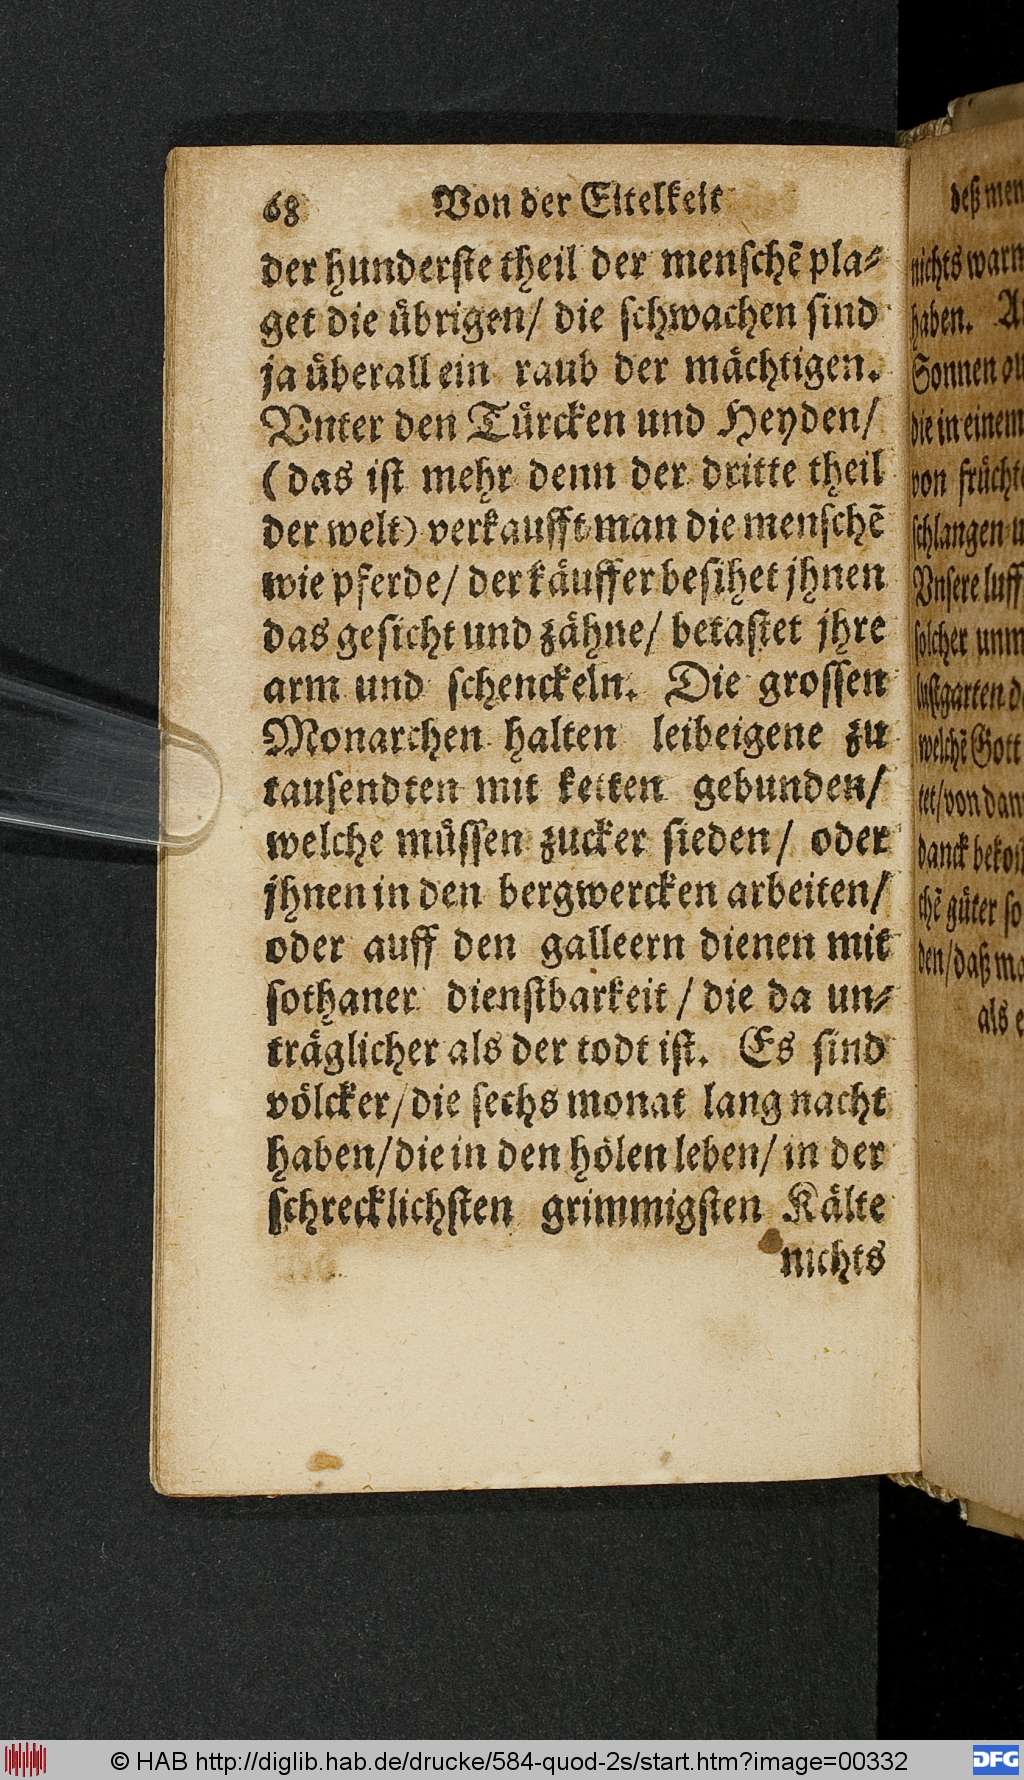 68 Von der Eitelkeit
der hunderste theil der menschẽ pla⸗
get die übrigen/ die schwachen sind
ja überall ein raub der mächtigen.
Vnter den Türcken und Heyden/
(das ist mehr denn der dritte theil
der welt) verkaufft man die menschẽ
wie pferde/ der käuffer besihet jhnen
das gesicht und zähne/ betastet jhre
arm und schenckeln. Die grossen
Monarchen halten leibeigene zu
tausendten mit ketten gebunden/
welche müssen zucker sieden/ oder
jhnen in den bergwercken arbeiten/
oder auff den galleern dienen mit
sothaner dienstbarkeit/ die da un⸗
träglicher als der todt ist. Es sind
völcker/ die sechs monat lang nacht
haben/ die in den hölen leben/ in der
schrecklichsten grimmigsten Kälte
nichts
deß men
nichts warm
haben. A
Sonnen
die in einem
von frücht
schlangen u
Vnsere luff
solcher unm
lustgarten d
welchẽ Gott
tet/ von dan
danck
chẽ güter so
den/ daß ma
als e
© HAB http://diglib.hab.de/drucke/584-quod-2s/start.htm?image=00332
DFG